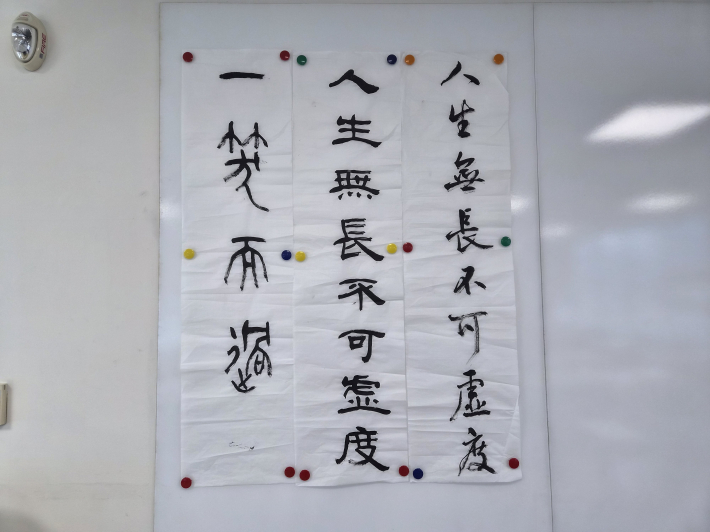 人生無長不可虛度
人生無長不可虛度
一笑而過